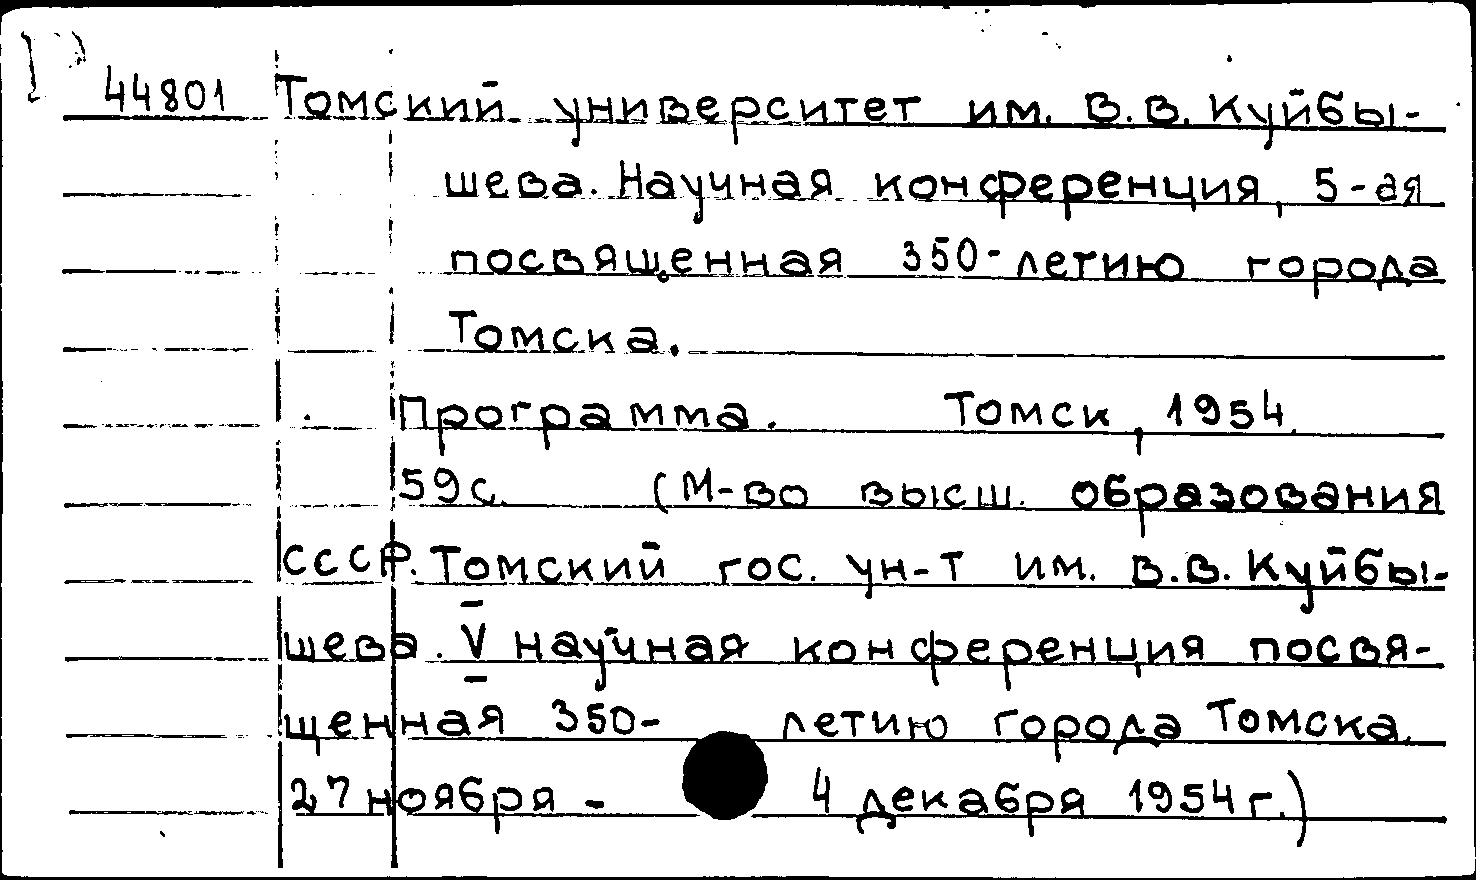 44801 Томский университет им. В.В. Куйбы-
шева. Научная конференция, 5-ая
посвященная 350-летию города
Томска.
Программа. Томск, 1954.
59с. (М-во высш. образования
СССР. Томский гос. ун-т им. В.В. Куйбы-
шева. V научная конференция посвя-
щенная 350- летию города Томска.
27 ноября - 4 декабря 1954 г.)